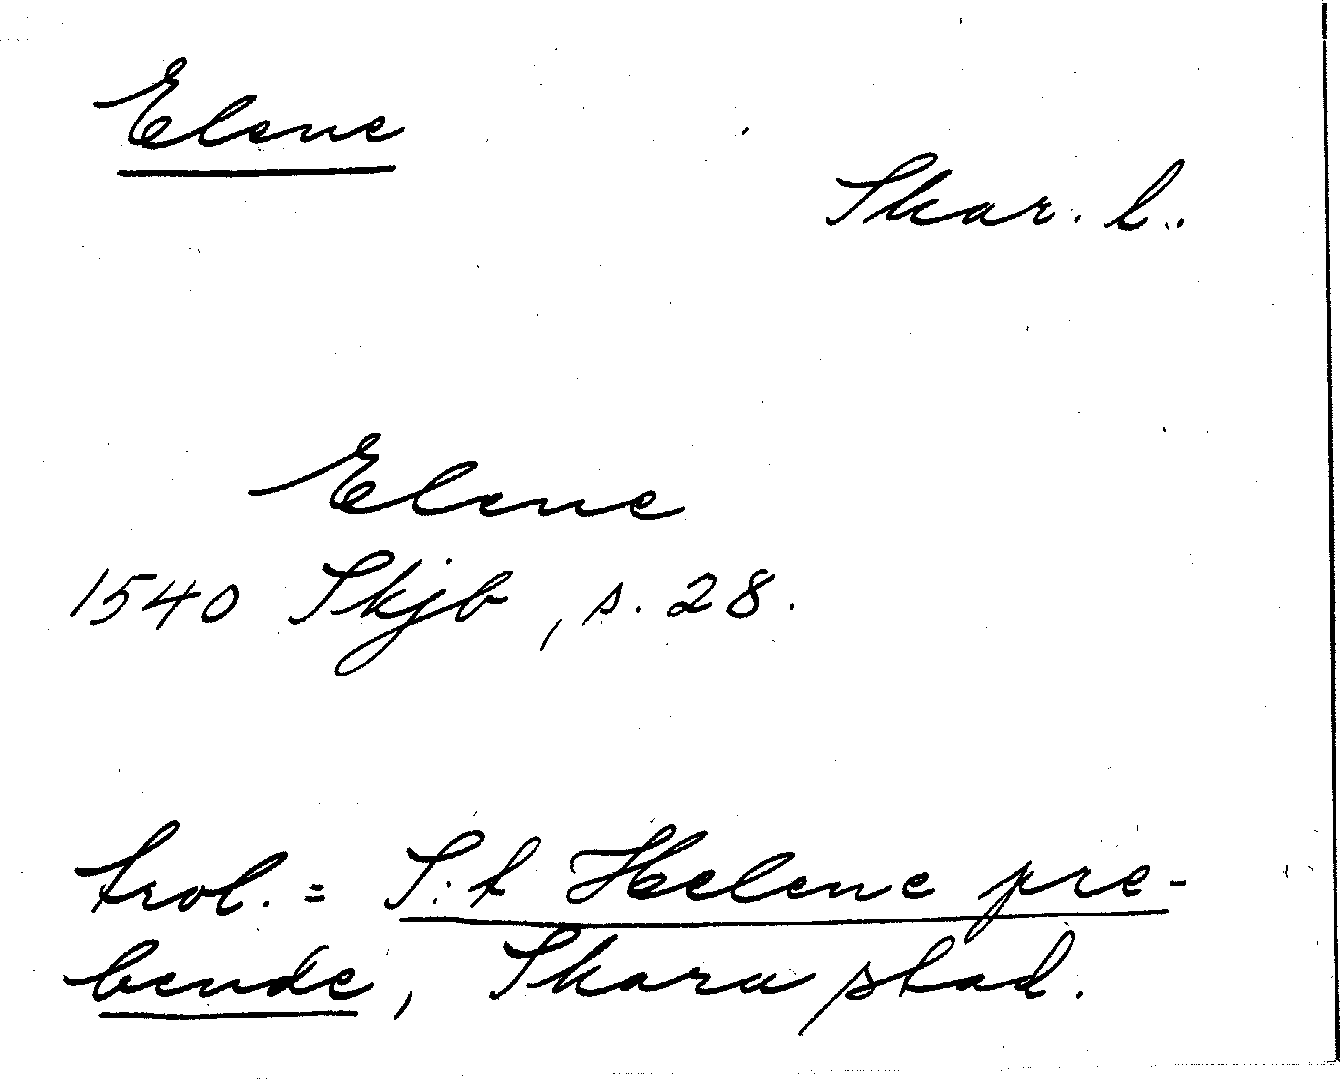 Elene
Skar. l.
Elene
1540 Skjb, s. 28.
trol. = S:t Helene pre-
bende, Skara stad.